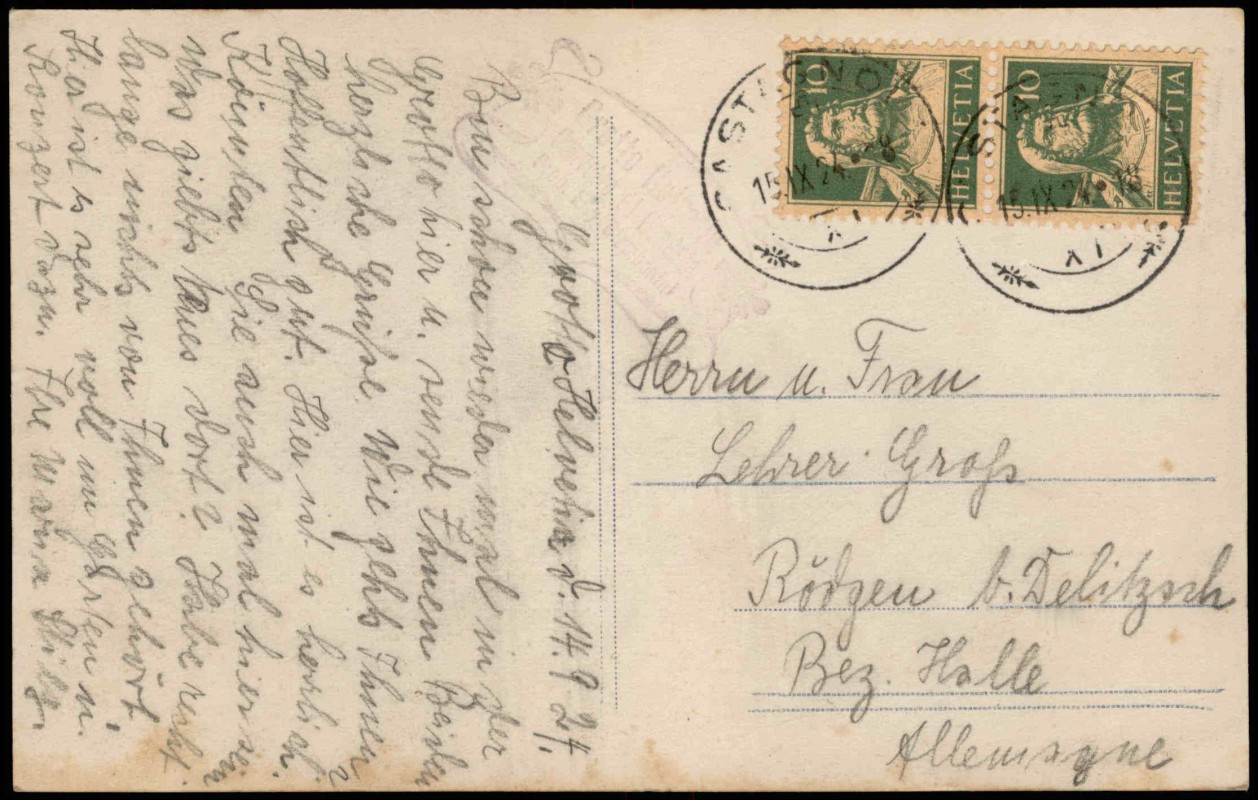 Grotto Helvetia d. 14. 9. 24.
Bin schon wieder mal in der
Grotto hier u. sende Ihnen Beiden
herzliche Grüße. Wie geht's Ihnen?
Hoffentlich gut. Hier ist es herrlich.
Könnten Sie auch mal hier sein
Was giebts Neues dort? Habe recht
lange nichts von Ihnen gehört.
Hier ist es sehr voll im Garten u.
Konzert dazu. Ihre
10 HELVETIA
10 HELVETIA
CASTAGNOLA
15.IX.24.
XI
CASTAGNOLA
15.IX.24.
XI
Herrn u. Frau
Lehrer Groß
Rödgen b. Delitzsch
Bez. Halle
Allemagne